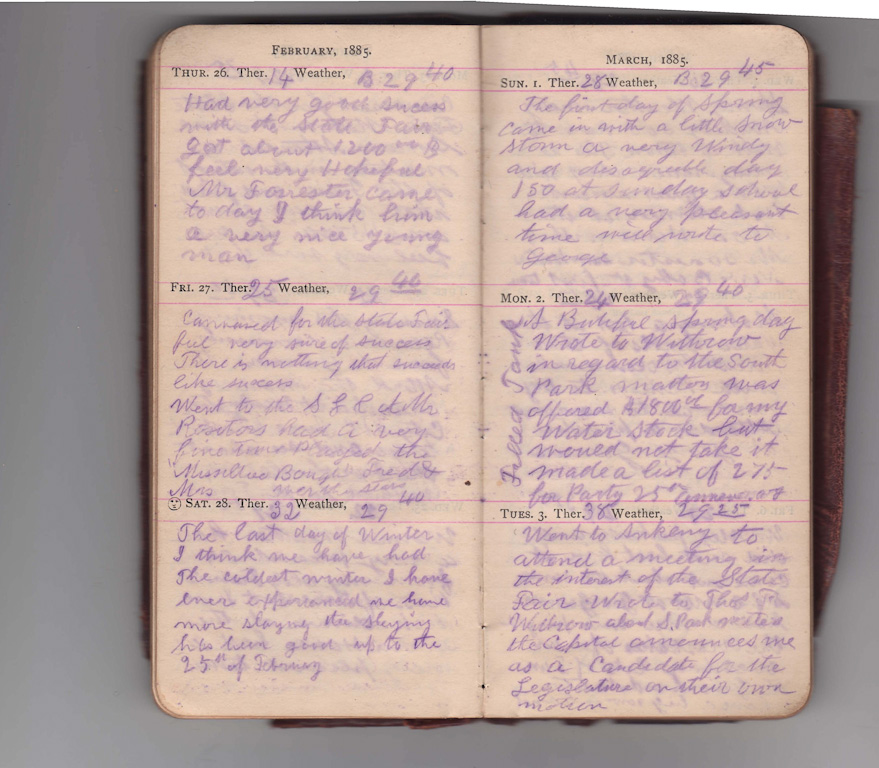 FEBRUARY, 1885.
THUR. 26. Ther. 14 Weather, B 29 40
Had very good sucess
with the State Fair
got about 1200
feel very Hopeful
Mr Forrester came
to day I think him
a very nice young
man
FRI. 27. Ther. 25 Weather, 29 40
Canvased for the State Fair
feel very sure of success
There is nothing that succeeds
like success
Went to the S L C at Mr
had a very
fine Time Played the
Fred &
Mrs
SAT. 28. Ther. 32 Weather, 29 40
The last day of Winter
I think we have had
The coldest winter I have
ever experianced we have
more slaying the Slaying
has been good up to the
25th of February
MARCH, 1885.
SUN. 1. Ther. 28 Weather, B 29 45
The first day of Spring
came in with a little Snow
Storm a very Windy
and disagreeble day
150 at Sunday School
had a very pleasant
time will wrote to
George
MON. 2. Ther. 24 Weather, 29 40
A Butiful Spring day
Wrote to Withrow
in regard to the South
Park matter was
offered $1800 for my
Water Stock but
would not take it
made a list of 275
for Party 25th
Filled Tank
TUES. 3. Ther. 38 Weather, 29 25
Went to Ankeny to
attend a meeting in
the interest of the State
Fair Wrote to Thos F
Withrow about S. Park
the Capital announces me
as a Candidate for the
Legislature on their own
motion